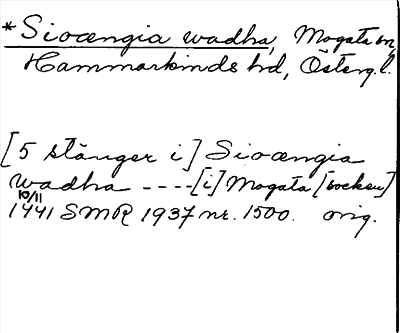 *Siocengia wadha, Mogata sn,
Hammarkinds hd, Österg.l.
[5 stänger i] Siocengia
wadha ----[i] Mogata [socken]
10/11
1441 SMR 1937 nr. 1500. orig.